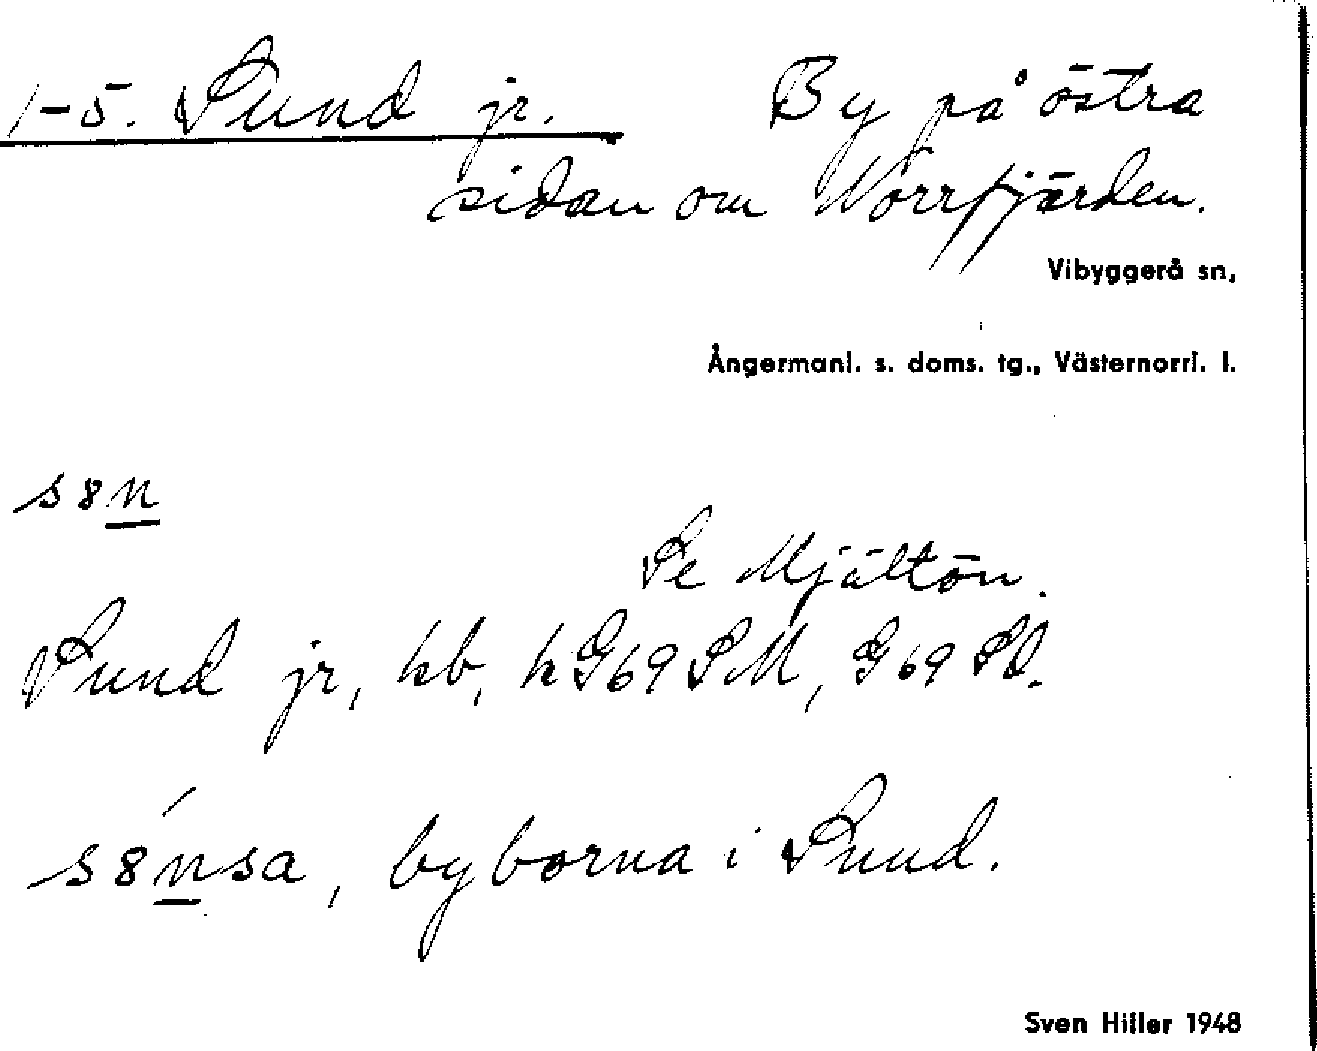 1-5. Sund jr. By på östra
sidan om Norrfjärden.
Vibyggerå sn,
Ångermanl. s. doms. tg., Västernorrl. l.
s8n
Se Mjältön.
Sund jr, kb, kG69SM, G69Sd.
s8nsa, byborna i Sund.
Sven Hiller 1948